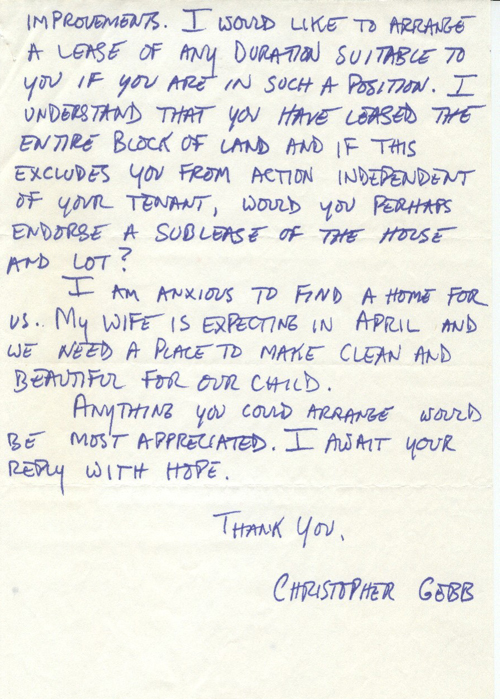 IMPROVEMENTS. I WOULD LIKE TO ARRANGE
A LEASE OF ANY DURATION SUITABLE TO
YOU IF YOU ARE IN SUCH A POSITION. I
UNDERSTAND THAT YOU HAVE LEASED THE
ENTIRE BLOCK OF LAND AND IF THIS
EXCLUDES YOU FROM ACTION INDEPENDENT
OF YOUR TENANT, WOULD YOU PERHAPS
ENDORSE A SUBLEASE OF THE HOUSE
AND LOT?
I AM ANXIOUS TO FIND A HOME FOR
US.. MY WIFE IS EXPECTING IN APRIL AND
WE NEED A PLACE TO MAKE CLEAN AND
BEAUTIFUL FOR OUR CHILD.
ANYTHING YOU COULD ARRANGE WOULD
BE MOST APPRECIATED. I AWAIT YOUR
REPLY WITH HOPE.
THANK YOU,
CHRISTOPHER GEBB